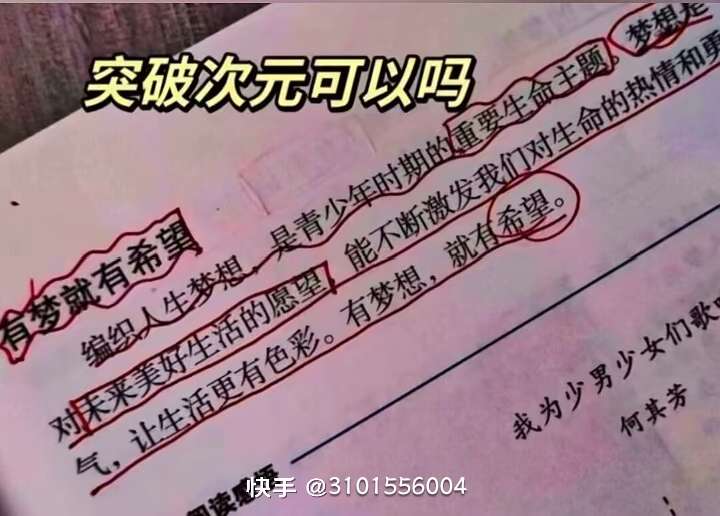 突破次元可以吗
有梦就有希望
编织人生梦想，是青少年时期的重要生命主题。梦想是
对未来美好生活的愿望，能不断激发我们对生命的热情和勇
气，让生活更有色彩。有梦想，就有希望。
我为少男少女们歌
何其芳
阅读感悟
快手 @3101556004